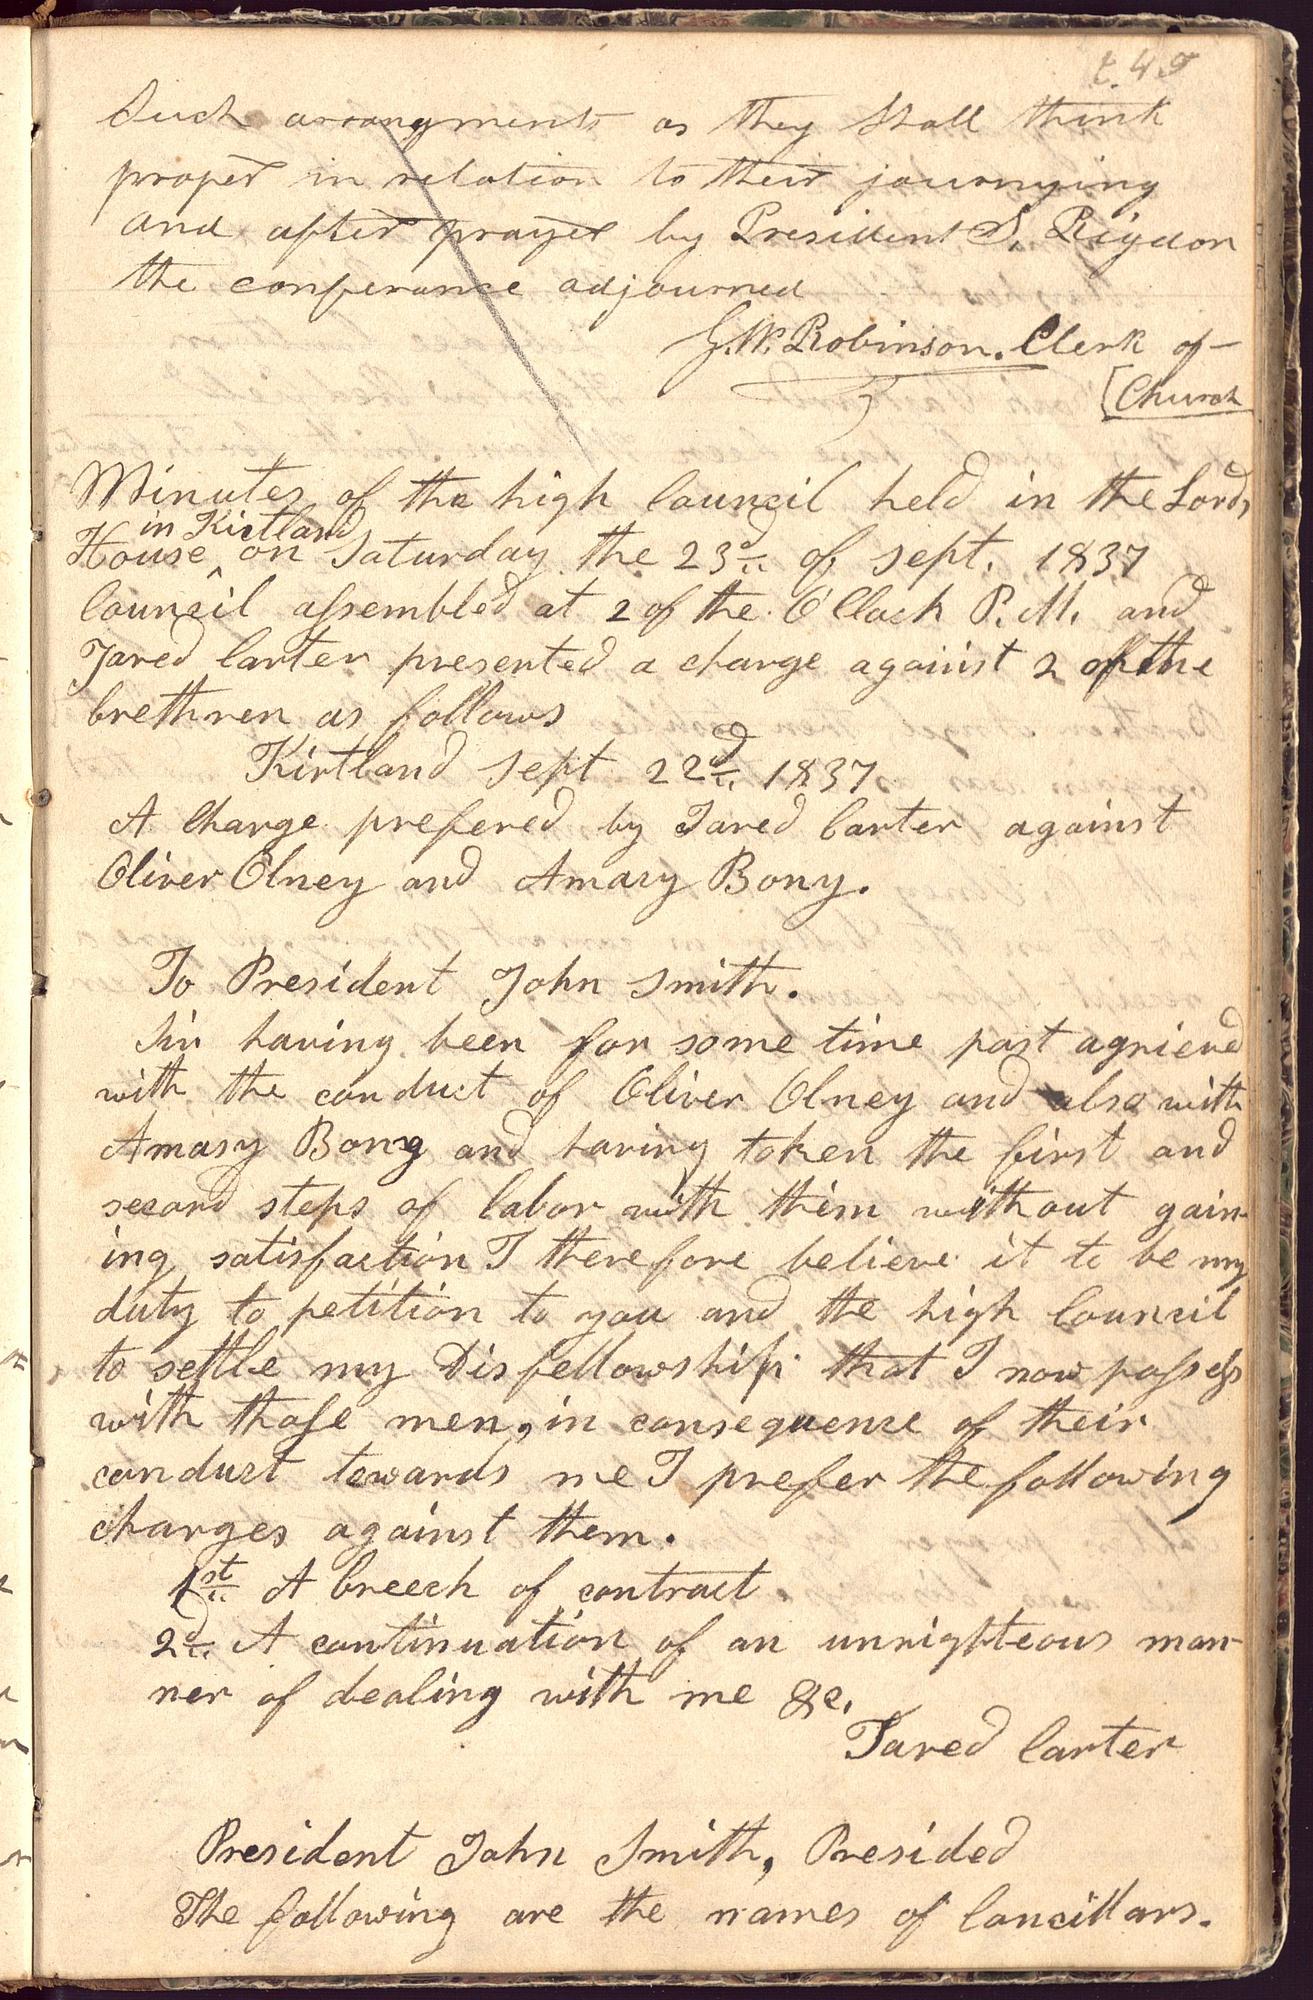 Such arrangments as they shall think
proper in relation to their journying
and after prayer by President S. Rigdon
the conferance adjourned
G. W. Robinson. Clerk of
[Church
Minutes of the high Council held in the Lords
in Kirtland
House ^ on Saturday the 23d of sept. 1837
Council assembled at 2 of the O Clock P.M. and
Jared Carter presented a charge against 2 of the
brethren as follows
Kirtland sept 22d 1837
A Charge prefered by Jared Carter against
Oliver Olney and Amasy Bony.
To President John Smith.
Sir having been for some time past agrieved
with the conduct of Oliver Olney and also with
Amasy Bony and having token the first and
second steps of labor with them without gain-
ing satisfaction I therefore believe it to be my
duty to petition to you and the high Council
to settle my Disfellowship that I now possess
with those men, in consequence of their
conduct towards me I prefer the following
charges against them.
1st A breech of contract
2d A continuation of an unrighteous man-
ner of dealing with me &c.
Jared Carter
President John Smith, Presided
The following are the names of Concillars.